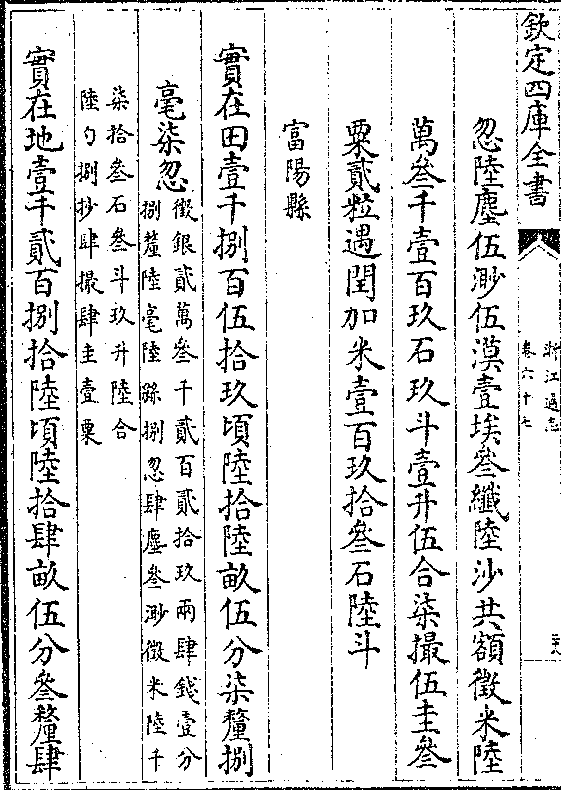 欽定四庫全書
浙江通志
卷六十七
二十八
忽陸塵伍渺伍漠壹埃叄纖陸沙共額徵米陸
萬叄千壹百玖石玖斗壹升伍合柒撮伍圭叄
粟貳粒遇閏加米壹百玖拾叄石陸斗
富陽縣
實在田壹千捌百伍拾玖頃陸拾陸畝伍分柒釐捌
毫柒忽
徵銀貳萬叄千貳百貳拾玖兩肆錢壹分
捌釐陸毫陸絲捌忽肆塵叄渺徵米陸千
柒拾叄石叄斗玖升陸合
陸勺捌抄肆撮肆圭壹粟
實在地壹千貳百捌拾陸頃陸拾肆畝伍分叄釐肆